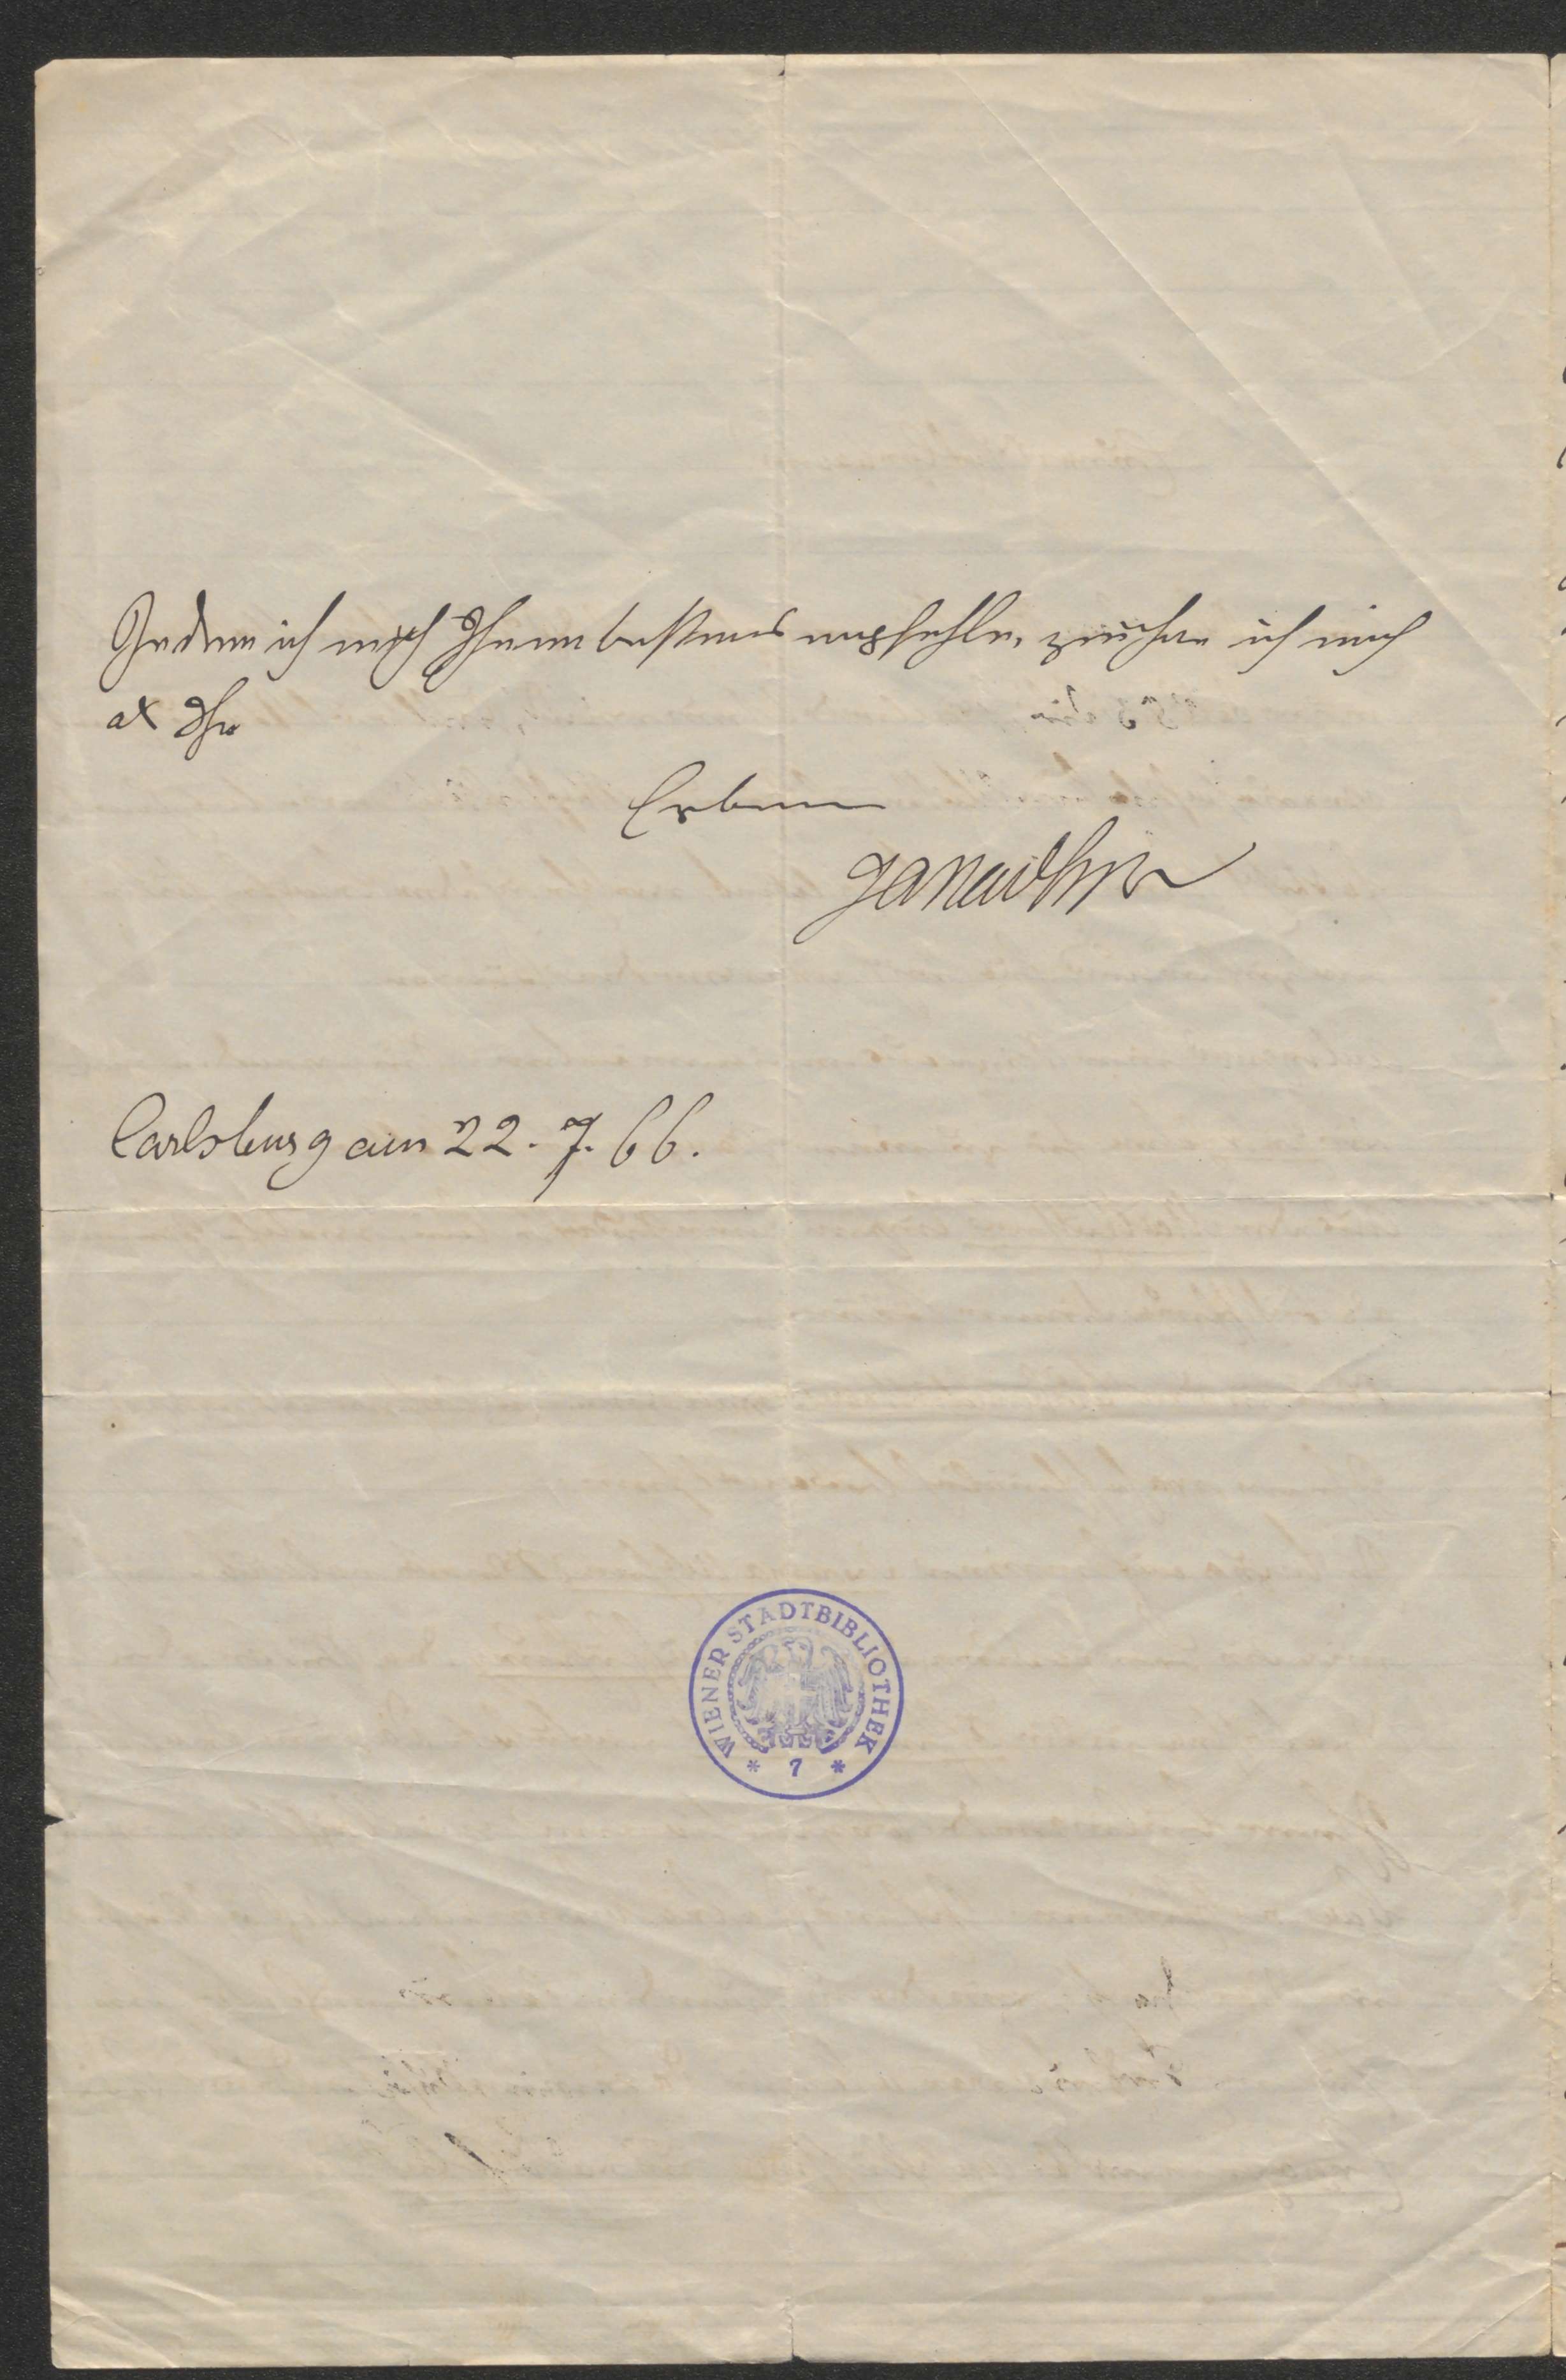 Indem ich mich Ihnen bestens empfehle, zeichne ich mich
als Ihr
Ergebener
Carlsburg am 22. 7. 66.
WIENER STADTBIBLIOTHEK
* 7 *